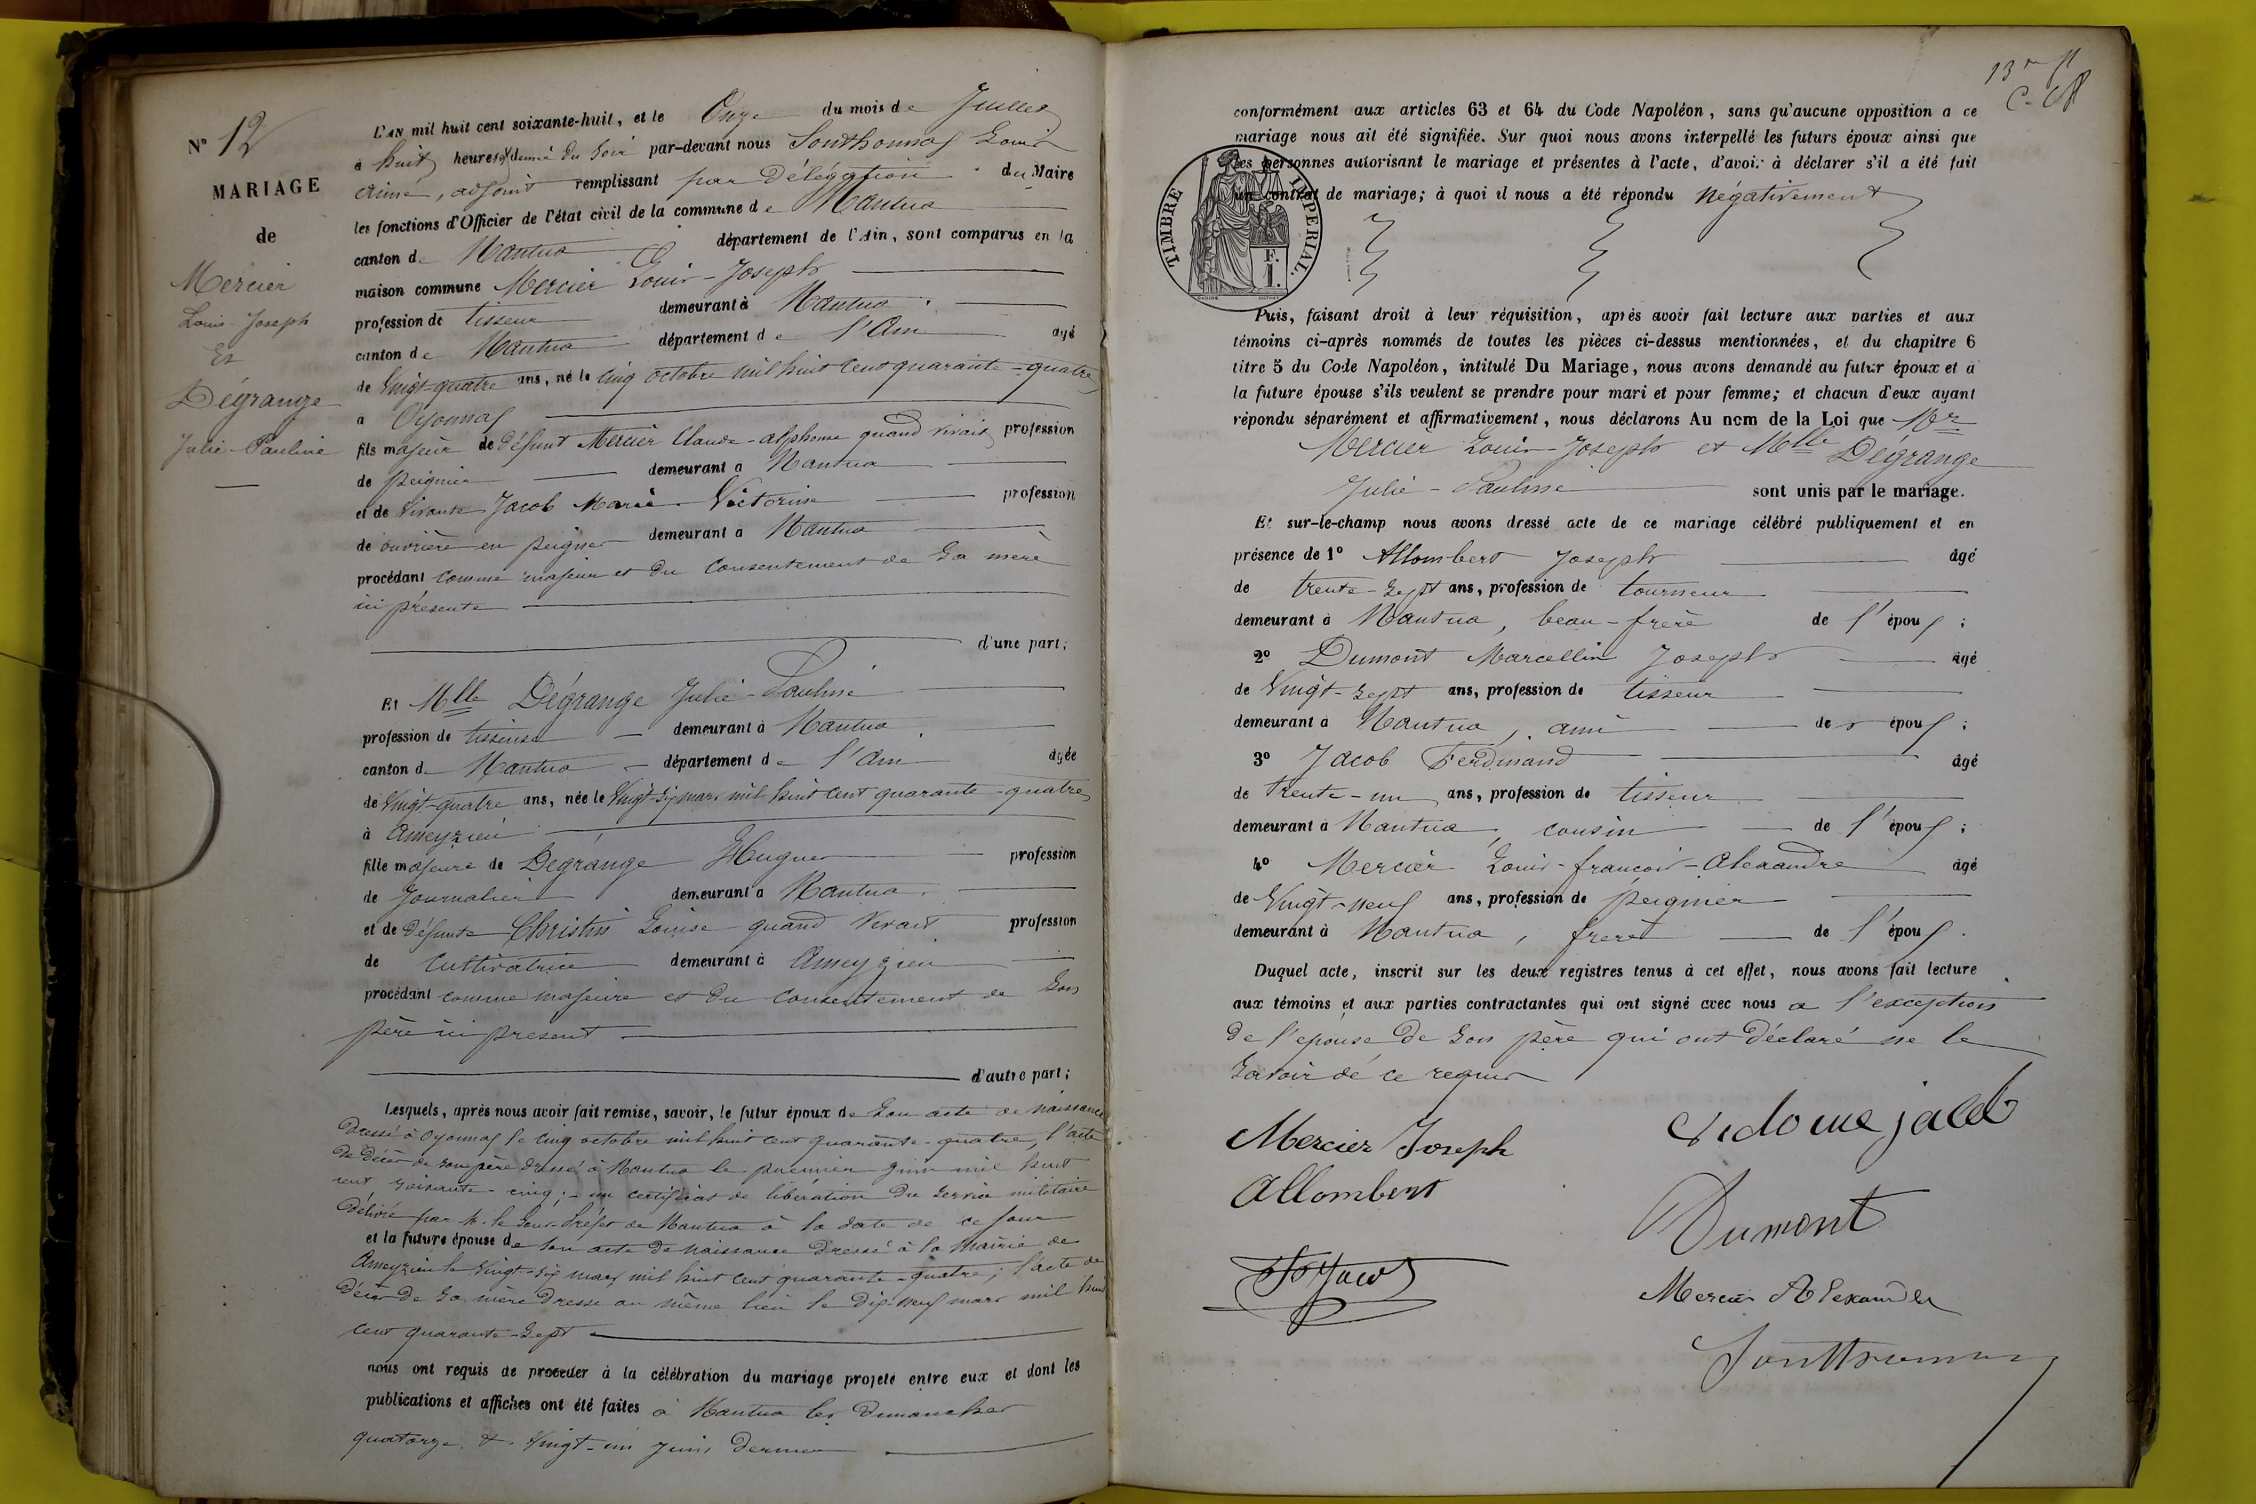 N° 12
MARIAGE
de
Mercier
Louis-Joseph
Et
Dégrange
Julie-Pauline
L'AN mil huit cent soixante-huit, et le Onze du mois de Juillet
à huit heures et demie du soir par-devant nous Sonthonnas Louis
aimé, adjoint remplissant par Délégation du Maire
les fonctions d'Officier de l'état civil de la commune de Nantua
canton de Nantua département de l'Ain, sont comparus en la
maison commune Mercier Louis-Joseph
profession de tisseur demeurant à Nantua
canton de Nantua département de l'Ain agé
de Vingt-quatre ans, né le cinq octobre mil huit cent quarante-quatre
à Oyonnax
fils majeur de défunt Mercier Claude-alphonse quand vivait profession
de peignier demeurant à Nantua
et de vivante Jacob Marie Victorine profession
de ouvrière en peignes demeurant à Nantua
procédant comme majeur et du consentement de Sa mère
ici présente
d'une part;
Et Mlle Dégrange Julie-Pauline
profession de tisseuse demeurant à Nantua
canton de Nantua département de l'Ain agée
de Vingt-quatre ans, née le Vingt-six mars mil huit cent quarante-quatre
à Ameyzieu
fille majeure de Dégrange Hugues profession
de Journalier demeurant à Nantua
et de défunte Christin Louise quand vivait profession
de cultivatrice demeurant à Ameyzieu
procédant comme majeure et du consentement de Son
père ici présent
d'autre part;
Lesquels, après nous avoir fait remise, savoir, le futur époux de Son acte de Naissance
Dressé à Oyonnax le cinq octobre mil huit cent quarante-quatre, l'acte
de décès de son père dressé à Nantua le premier juin mil huit
cent soixante-cinq; - un certificat de libération du Service militaire
Délivré par M. le Sous-Préfet de Nantua à la date de ce jour
et la future épouse de Son acte de Naissance Dressé à la Mairie de
Ameyzieu le Vingt-six mars mil huit cent quarante-quatre; l'acte de
décès de Sa mère Dressé au même lieu le Dix-neuf mars mil huit
cent quarante-Sept
nous ont requis de procéder à la célébration du mariage projeté entre eux et dont les
publications et affiches ont été faites à Nantua les Dimanches
quatorze & Vingt-un juin dernier
13
conformément aux articles 63 et 64 du Code Napoléon, sans qu'aucune opposition a ce
mariage nous ait été signifiée. Sur quoi nous avons interpellé les futurs époux ainsi que
les personnes autorisant le mariage et présentes à l'acte, d'avoir à déclarer s'il a été fait
un contrat de mariage; à quoi il nous a été répondu Négativement
TIMBRE IMPERIAL.
F.
1.
Puis, faisant droit à leur réquisition, après avoir fait lecture aux parties et aux
témoins ci-après nommés de toutes les pièces ci-dessus mentionnées, et du chapitre 6
titre 5 du Code Napoléon, intitulé Du Mariage, nous avons demandé au futur époux et à
la future épouse s'ils veulent se prendre pour mari et pour femme; et chacun d'eux ayant
répondu séparément et affirmativement, nous déclarons Au nom de la Loi que Mr
Mercier Louis-Joseph et Mlle Dégrange
Julie-Pauline sont unis par le mariage.
Et sur-le-champ nous avons dressé acte de ce mariage célébré publiquement et en
présence de 1° Allombert Joseph âgé
de trente-Sept ans, profession de tourneur
demeurant à Nantua, beau-frère de l'époux;
2° Dumont Marcellin Joseph âgé
de Vingt-Sept ans, profession de tisseur
demeurant à Nantua, ami des époux;
3° Jacob Ferdinand âgé
de Trente-un ans, profession de tisseur
demeurant à Nantua, cousin de l'époux;
4° Mercier Louis-françois-Alexandre âgé
de Vingt-neuf ans, profession de peignier
demeurant à Nantua, frère de l'époux.
Duquel acte, inscrit sur les deux registres tenus à cet effet, nous avons fait lecture
aux témoins et aux parties contractantes qui ont signé avec nous a l'exception
De l'epouse De Son père qui ont déclaré ne le
Savoir de ce requis
Mercier Joseph
jacob
Allombert
Dumont
Jacob
Mercier Alexandre
Sonthonnas